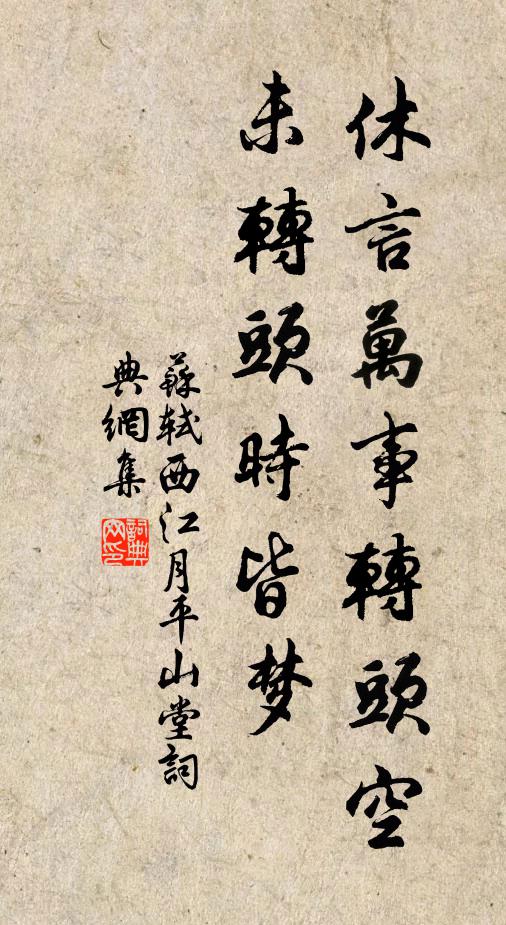 休言萬事轉頭空
未轉頭時皆梦
蘇軾西江月平山堂詞
典網集
詞典网印